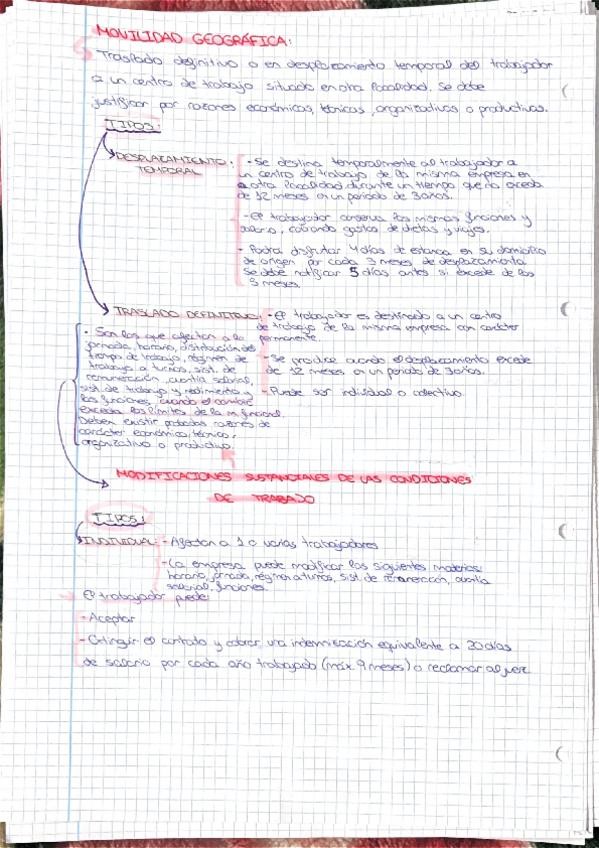 MOVILIDAD GEOGRÁFICA:
Traslado definitivo o en desplazamiento temporal del trabajador
a un centro de trabajo situado en otra localidad. Se debe
justificar por razones económicas, técnicas, organizativas o productivas.
TIPOS:
DESPLAZAMIENTO TEMPORAL:
- Se destina temporalmente al trabajador a
un centro de trabajo de la misma empresa en
otra localidad durante un tiempo que no exceda
de 12 meses en un periodo de 3 años.
- El trabajador conserva las mismas funciones y
salario, cobrando gastos de dietas y viajes.
- Podrá disfrutar 4 días de estancia en su domicilio
de origen por cada 3 meses de desplazamiento
Se debe notificar 5 días antes si excede de los
3 meses.
TRASLADO DEFINITIVO:
- El trabajador es destinado a un centro
de trabajo de la misma empresa con carácter
permanente.
- Se produce cuando el desplazamiento excede
de 12 meses en un periodo de 3 años.
- Puede ser individual o colectivo.
- Son las que afectan a la
jornada, horario, distribución del
tiempo de trabajo, régimen de
trabajo a turnos, sist. de
remuneración, cuantía salarial,
sist. de trabajo y rendimiento y
las funciones, cuando el cambio
exceda los límites de la m. funcional.
Deben existir probadas razones de
carácter económico, técnico,
organizativo o productivo.
MODIFICACIONES SUSTANCIALES DE LAS CONDICIONES
DE TRABAJO
TIPOS:
INDIVIDUAL: - Afectan a 1 o varios trabajadores
- La empresa puede modificar las siguientes materias:
horario, jornada, régimen a turnos, sist. de remuneración, cuantía
salarial, funciones.
El trabajador puede:
- Aceptar
- Extinguir el contrato y cobrar una indemnización equivalente a 20 días
de salario por cada año trabajado (máx. 9 meses) o reclamar al juez